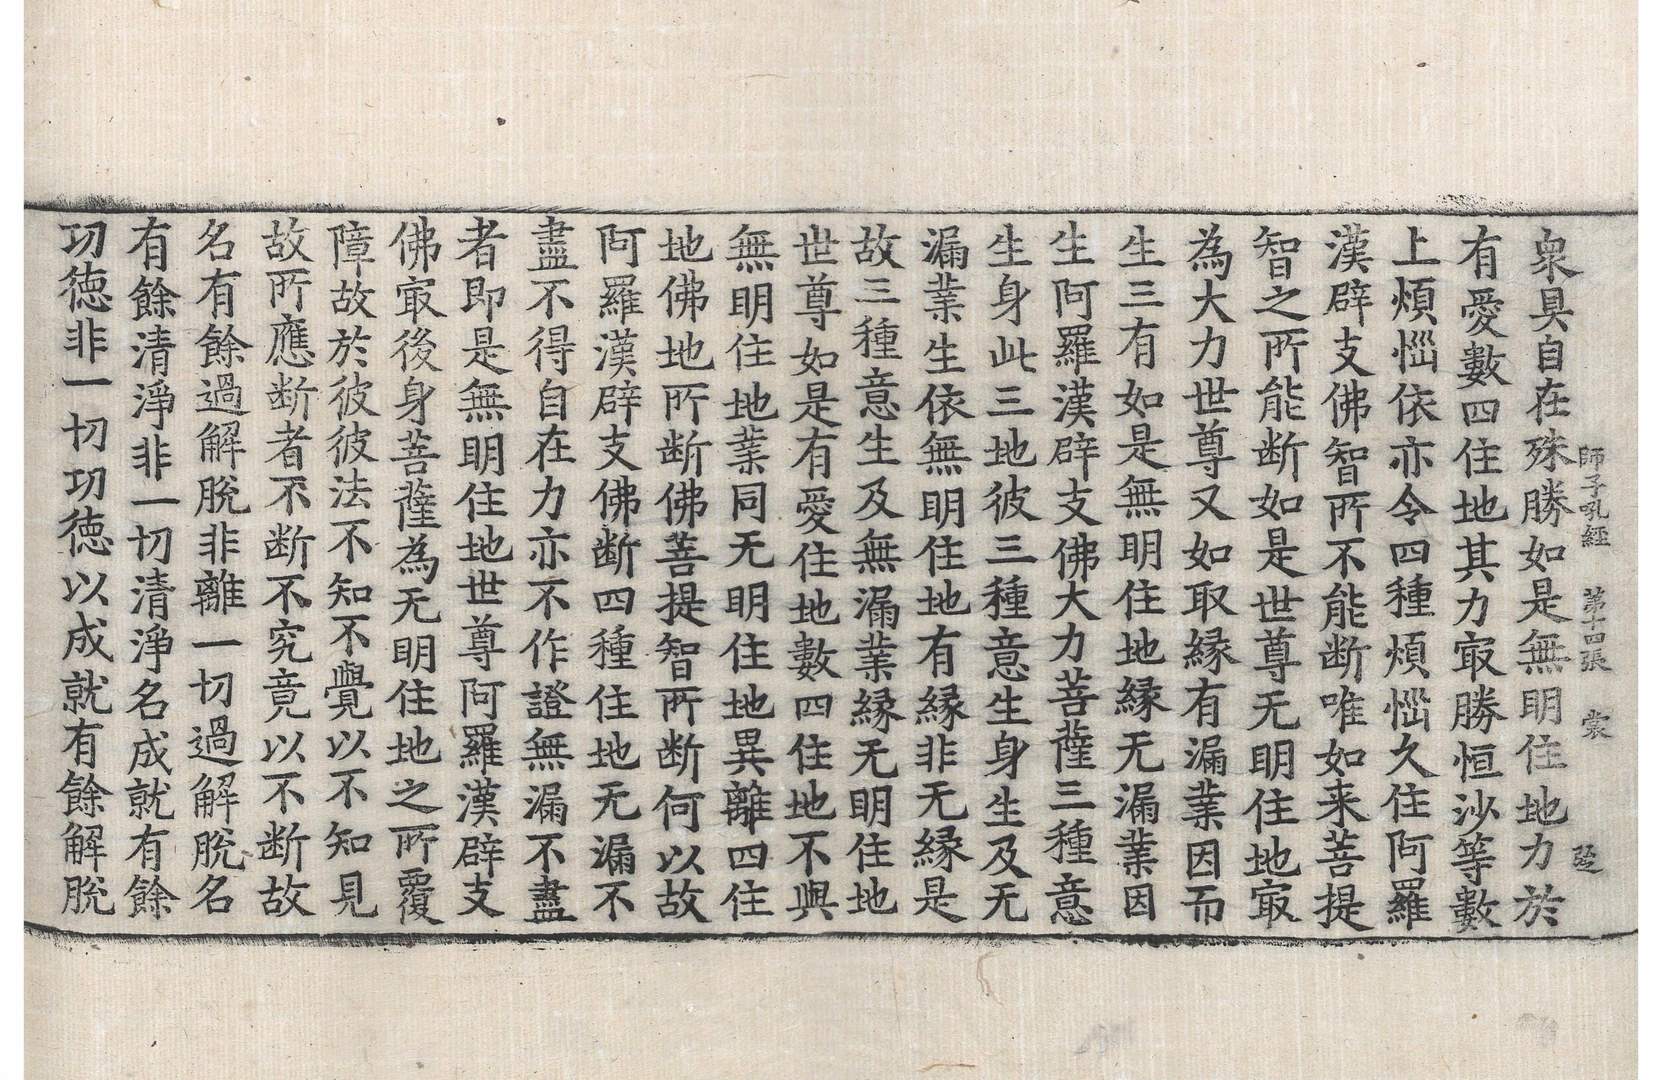 師子吼經 第十四張 裳
衆具自在殊勝如是無明住地力於
有愛數四住地其力㝡勝恒沙等數
上煩惱依亦令四種煩惱久住阿羅
漢辟支佛智所不能断唯如来菩提
智之所能断如是世尊无明住地㝡
為大力世尊又如取縁有漏業因而
生三有如是無明住地縁无漏業因
生阿羅漢辟支佛大力菩薩三種意
生身此三地彼三種意生身生及无
漏業生依無明住地有縁非无縁是
故三種意生及無漏業縁无明住地
世尊如是有愛住地數四住地不與
無明住地業同无明住地異離四住
地佛地所断佛菩提智所断何以故
阿羅漢辟支佛断四種住地无漏不
盡不得自在力亦不作證無漏不盡
者即是無明住地世尊阿羅漢辟支
佛㝡後身菩薩為无明住地之所覆
障故於彼彼法不知不覺以不知見
故所應断者不断不究竟以不断故
名有餘過解脫非離一切過解脫名
有餘清淨非一切清淨名成就有餘
功徳非一切功徳以成就有餘解脫